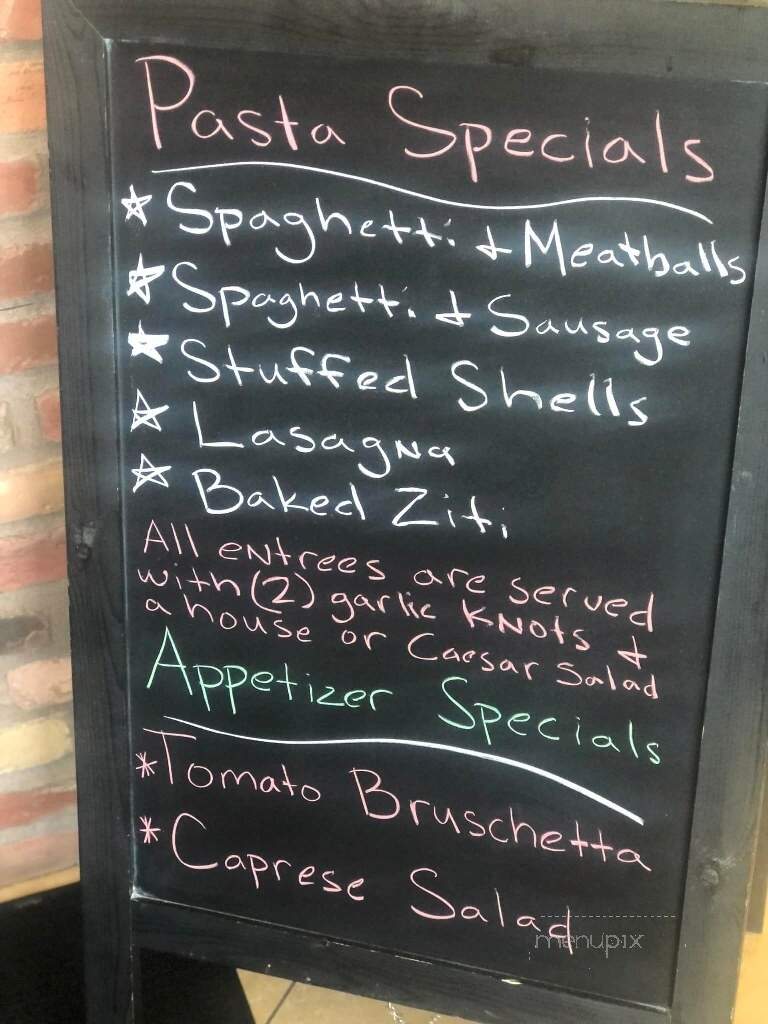 Pasta Specials
☆ Spaghetti & Meatballs
☆ Spaghetti & Sausage
☆ Stuffed Shells
☆ Lasagna
☆ Baked Ziti
All entrees are served
with (2) garlic knots &
a house or Caesar Salad
Appetizer Specials
* Tomato Bruschetta
* Caprese Salad
menupix